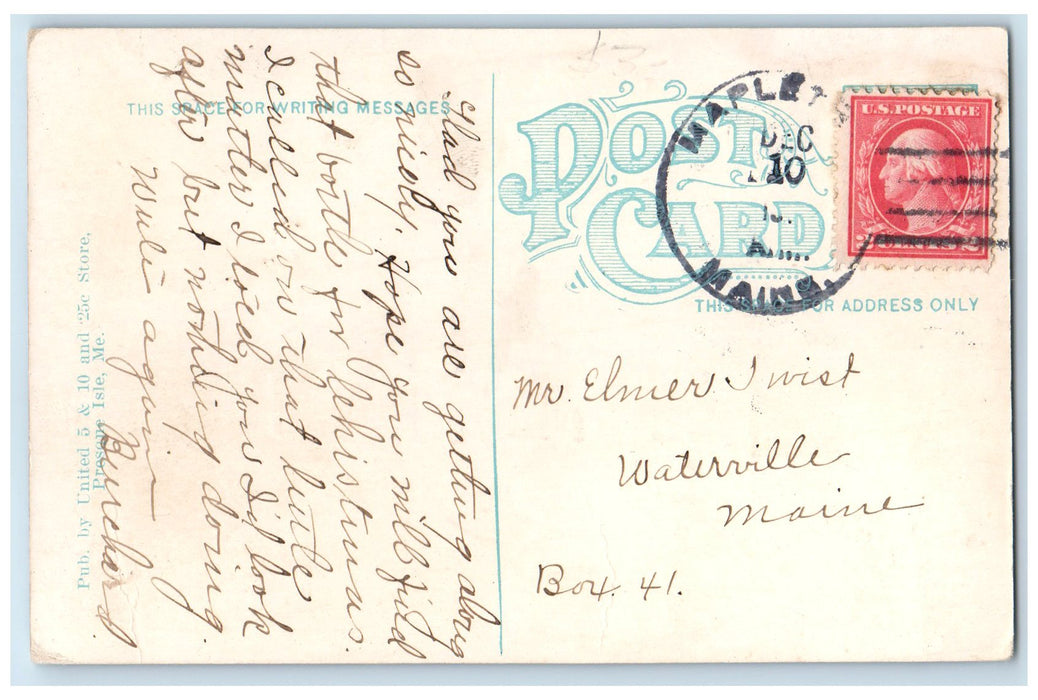 $3-
THIS SPACE FOR WRITING MESSAGES
Glad you are getting along
so nicely. Hope you will find
that bottle for Christmas.
I called on that little
matter I told you I'd look
after but nothing doing.
Write again
Burchard.
Pub. by United 5 & 10 and 25c Store,
Presque Isle, Me.
POST CARD
MAPLET
DEC
10
A.M.
MAINE.
U.S. POSTAGE
THIS SPACE FOR ADDRESS ONLY
Mr. Elmer Twist
Waterville
Maine
Box 41.